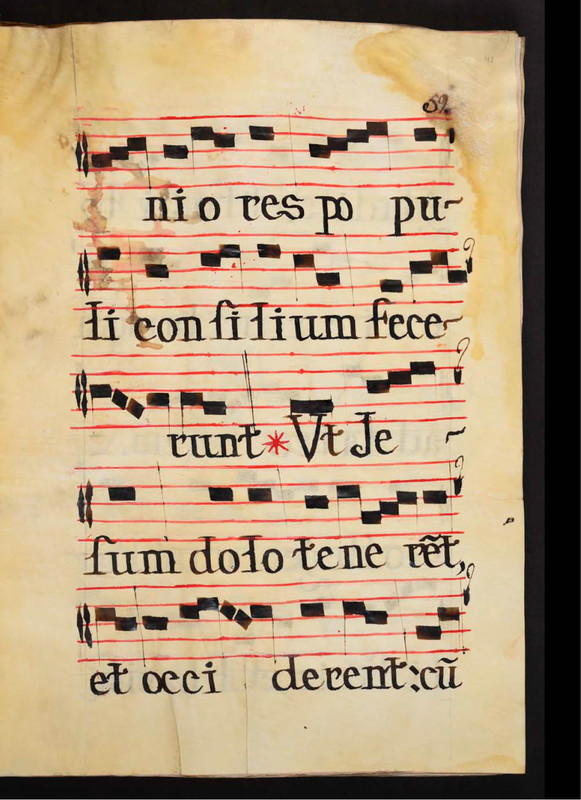 59.
nio res po pu-
li con ſi li um fece-
runt * Vt Je -
ſum dolo tene rẽt,
et occi derent: cũ